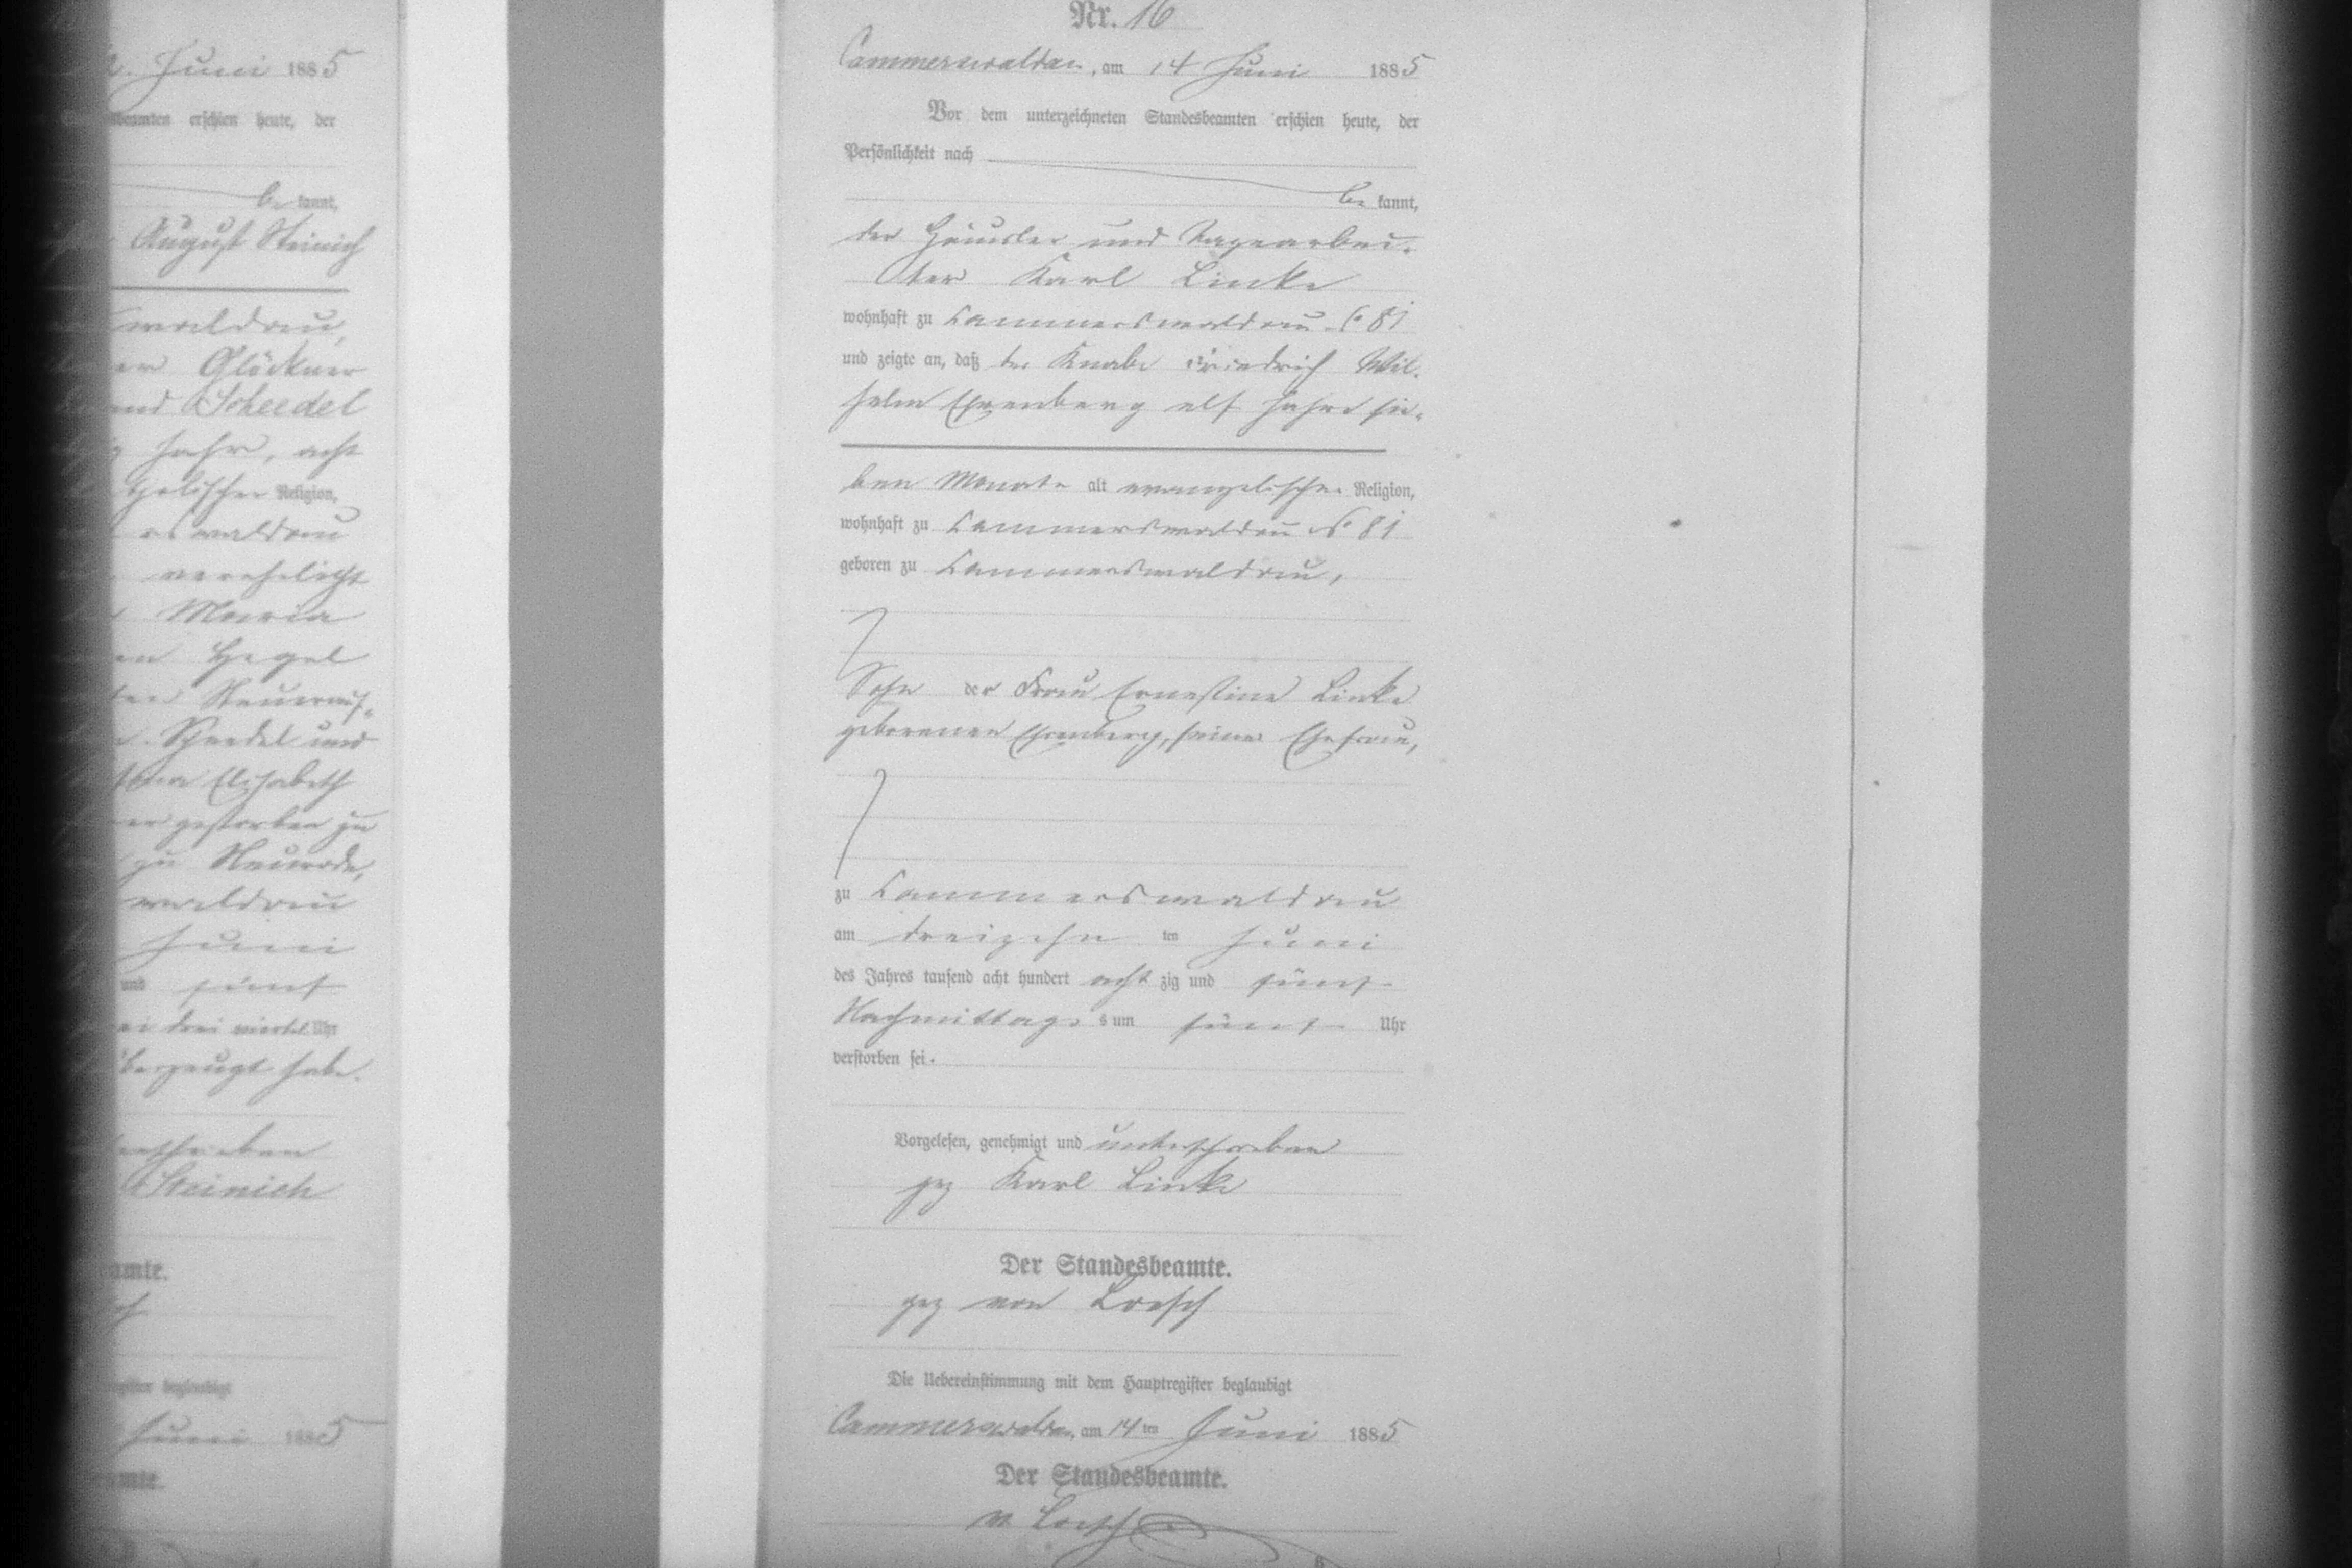 2. Juni 1885
beamten erschien heute, der
be kannt,
August Steinich
waldau,
Glöckner
und Scheedel
Jahr, acht
gelischer Religion,
rswaldau
verehelicht
Maria
Hegel
Steuerauf-
Scheedel und
Elisabeth
gestorben zu
zu Neurode,
waldau
Juni
und fünf
drei viertel Uhr
überzeugt habe.
terschrieben
Steinich
eamte.
register beglaubigt
Juni 1885
eamte.
Nr. 16
Cammerswaldau, am 14 Juni 1885
Vor dem unterzeichneten Standesbeamten erschien heute, der
Persönlichkeit nach
be kannt,
der Häusler und Tagearbei-
ter Karl Linke
wohnhaft zu Cammerswaldau No 81
und zeigte an, daß der Knabe Friedrich Wil-
helm Ehrenberg elf Jahre sie-
ben Monate alt evangelischer Religion,
wohnhaft zu Cammerswaldau No 81
geboren zu Cammerswaldau,
Sohn der Frau Ernestine Linke
geborenen Ehrenberg, seiner Ehefrau,
zu Cammerswaldau
am dreizehn ten Juni
des Jahres tausend acht hundert acht zig und fünf
Nachmittags um fünf Uhr
verstorben sei.
Vorgelesen, genehmigt und unterschrieben
gez Karl Linke
Der Standesbeamte.
gez von Loesch
Die Uebereinstimmung mit dem Hauptregister beglaubigt
Cammerswaldau, am 14 ten Juni 1885
Der Standesbeamte.
v. Loesch